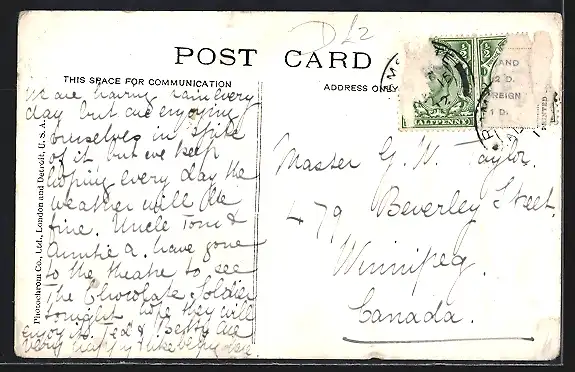 D £2
POST CARD
THIS SPACE FOR COMMUNICATION
ADDRESS ONLY
We are having rain every
day but are enjoying
ourselves in spite
of it but we keep
hoping every day the
weather will be
fine. Uncle Tom &
Auntie A. have gone
to the theatre to see
The Chocolate Soldier
tonight hope they will
enjoy it. Ted & Betty are
very happy
Photochrom Co., Ltd., London and Detroit, U.S.A.
HALFPENNY
AND
½ D.
FOREIGN
1 D.
Master G. W. Taylor.
479 Beverley Street.
Winnipeg.
Canada.